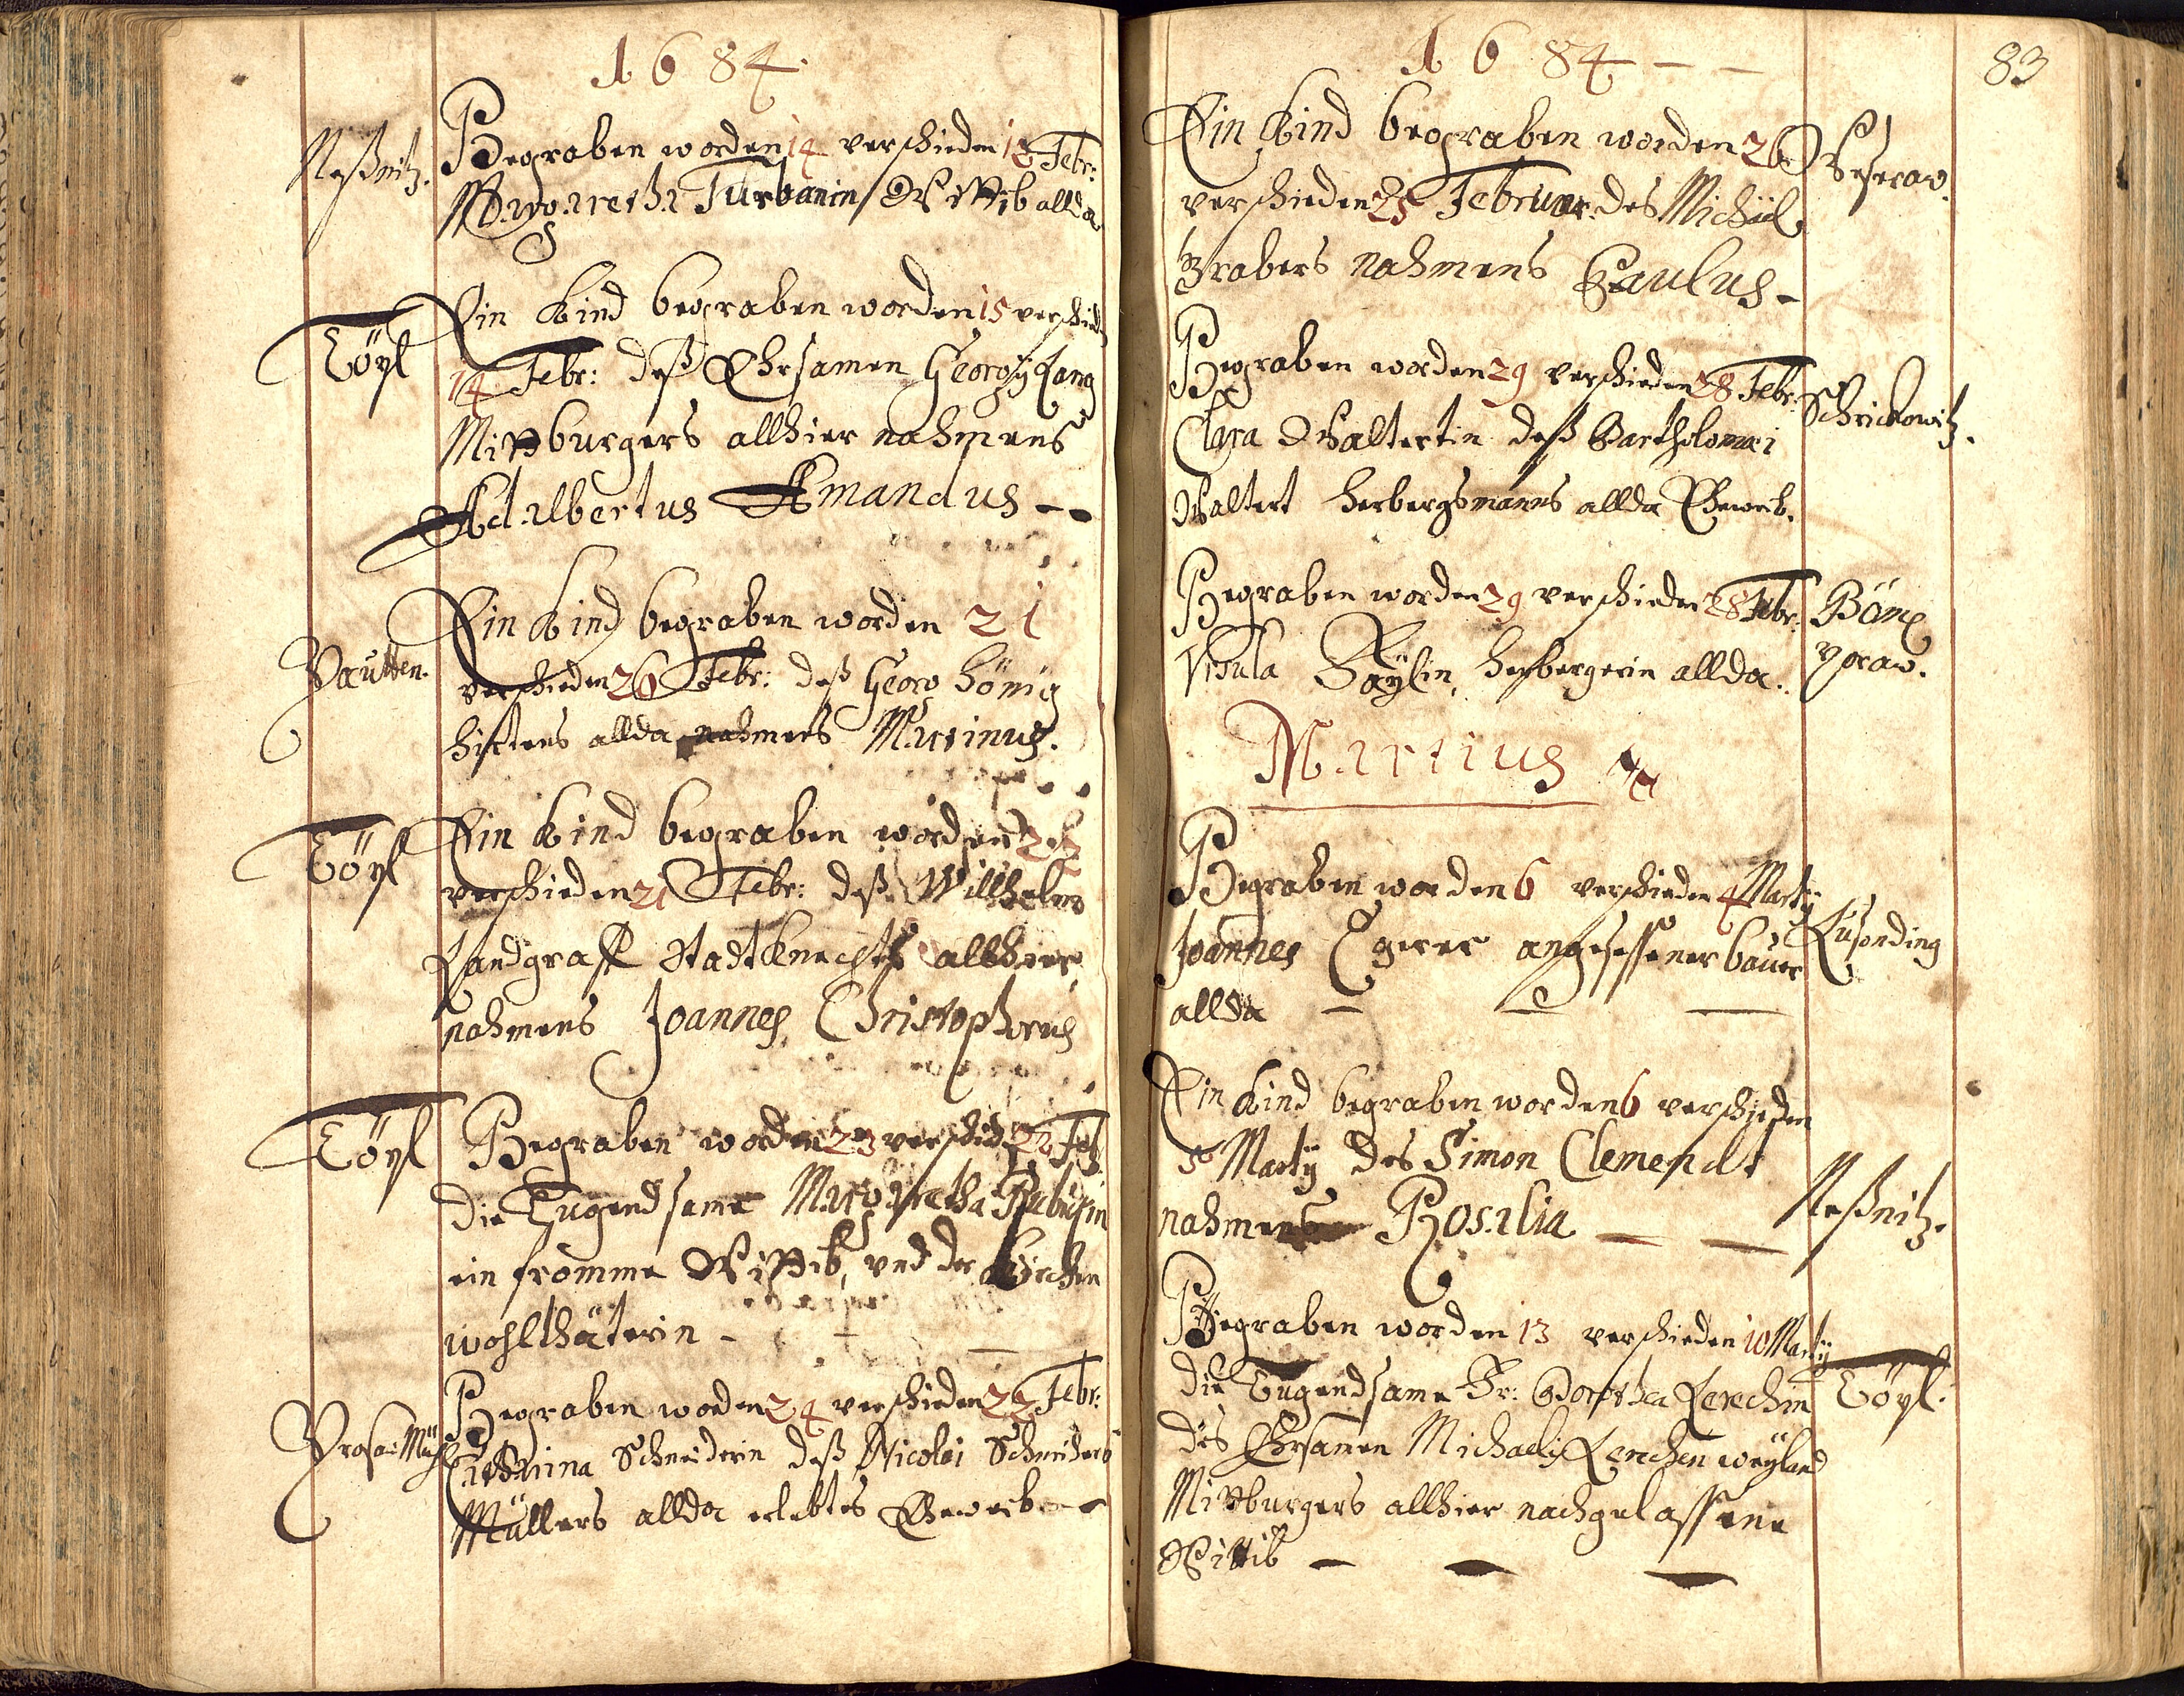 1684.
Neßnitz.
Begraben worden 14 verschieden 12 Febr:
Margaretha Turbanin Wittib allda
Töpl
Ein Kind begraben worden 15 verschied
14 Febr: deß Ehrsamen Georgy Lang
Mittburgers allhier nahmens
Adalbertus Amandus
Pautten.
Ein Kind begraben worden 21
verschieden 20 Febr: deß Georg Hönig
hirttens allda nahmens Martinus.
Töpl
Ein Kind begraben worden 22
verschieden 21 Febr: deß Willhelm
Landgraff Stadtknechts allhier
nahmens Joannes Christophorus
Töpl
Begraben worden 23 verschied 22 Feb
die Tugendsame Margaretha
ein fromme Wittib, und der Kirchen
wohlthäterin -
Prosa: Mühl
Begraben worden 24 verschieden 22 Febr:
Catharina Schneiderin deß Nicolai Schneiders
Müllers allda erlebtes Eheweib
1684
83
Ein Kind begraben worden 26
verschieden 25 Februar: des Michäel
Grabers nahmens Paulus -
Begraben worden 29 verschieden 28 Febr:
Schrickowitz.
Clara Waltertin deß Bartholomæi
Waltert herbergsmanns allda Eheweib.
Begraben worden 29 verschieden 28 Febr:
Böm
grav.
Vrsula Baÿlin, herbergerin allda.
Martius
Begraben worden 6 verschieden 4 Martÿ
Lusending
Joannes Egerer angesessener baur
allda
Ein Kind begraben worden 6 verschieden
5 Martÿ des Simon Clemendt
Neßnitz.
nahmens Rosalia
Begraben worden 13 verschieden 10 Martÿ
Töpl.
die Tugendsame Fr: Dorothea Lerchin
des Ehrsamen Michaelis Lerchen weÿland
Mittburgers allhier nachgelassene
Wittib